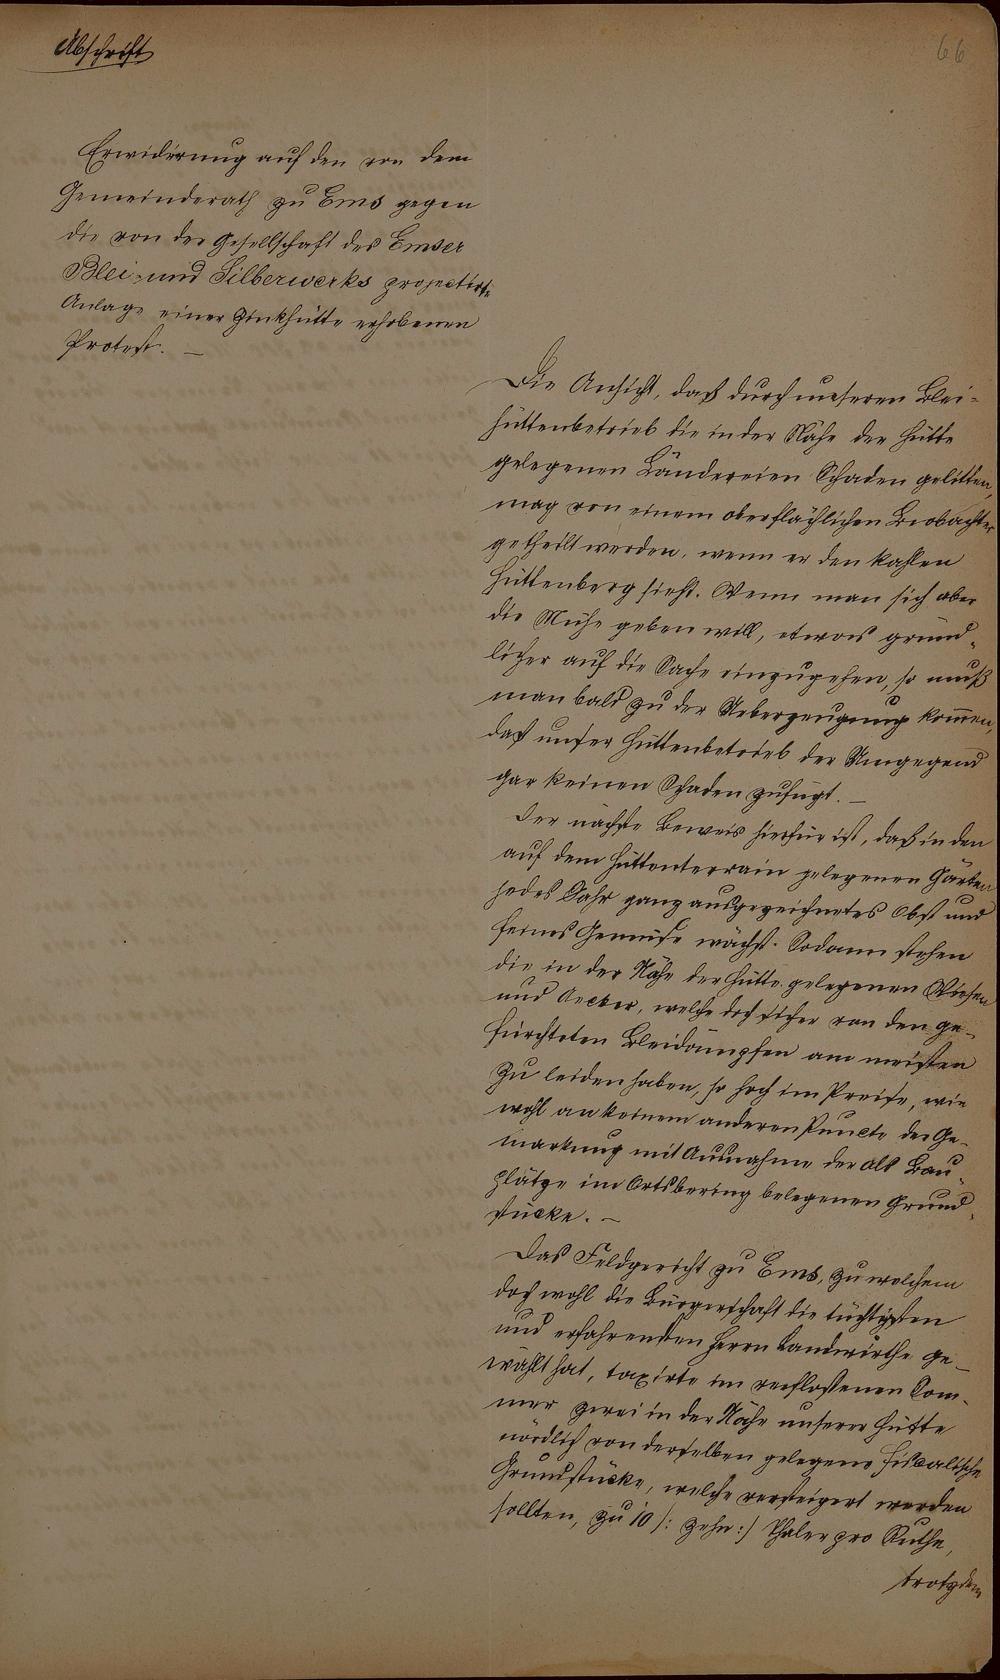 Abschrift
66
Erwiderung auf den von dem
Gemeinderath zu Ems gegen
die von der Gesellschaft des Emser
Blei- und Silberwerks projectirte
Anlage einer Zinkhütte erhobenen
Protest. —
Die Ansicht, daß durch unseren Blei-
hüttenbetrieb die in der Nähe der Hütte
gelegenen Ländereien Schaden gelitten,
mag von einem oberflächlichen Beobachter
getheilt werden, wenn er den kahlen
Hüttenberg sieht. Wenn man sich aber
die Mühe geben will, etwas gründ-
licher auf die Sache einzugehen, so muß
man bald zu der Ueberzeugung kommen,
daß unser Hüttenbetrieb der Umgegend
gar keinen Schaden zufügt. —
Der nächste Beweis hierfür ist, daß in den
auf dem Hüttenterrain gelegenen Gärten
jedes Jahr ganz ausgezeichnetes Obst und
feines Gemüse wächst. Sodann stehen
die in der Nähe der Hütte gelegenen Wiesen
und Aecker, welche doch sicher von den ge-
fürchteten Bleidämpfen am meisten
zu leiden haben, so hoch im Preise, wie
wohl an keinem anderen Puncte der Ge-
markung mit Ausnahme der als Bau-
plätze im Ortsbering belegenen Grund-
stücke. —
Das Feldgericht zu Ems, zu welchem
doch wohl die Bürgerschaft die tüchtigsten
und erfahrensten Herrn Landwirthe ge-
wählt hat, taxirte im verflossenen Som-
mer zwei in der Nähe unserer Hütte
nördlich von derselben gelegene fiscalische
Grundstücke, welche versteigert werden
sollten, zu 10 /: zehn :/ Thaler pro Ruthe,
trotzdem